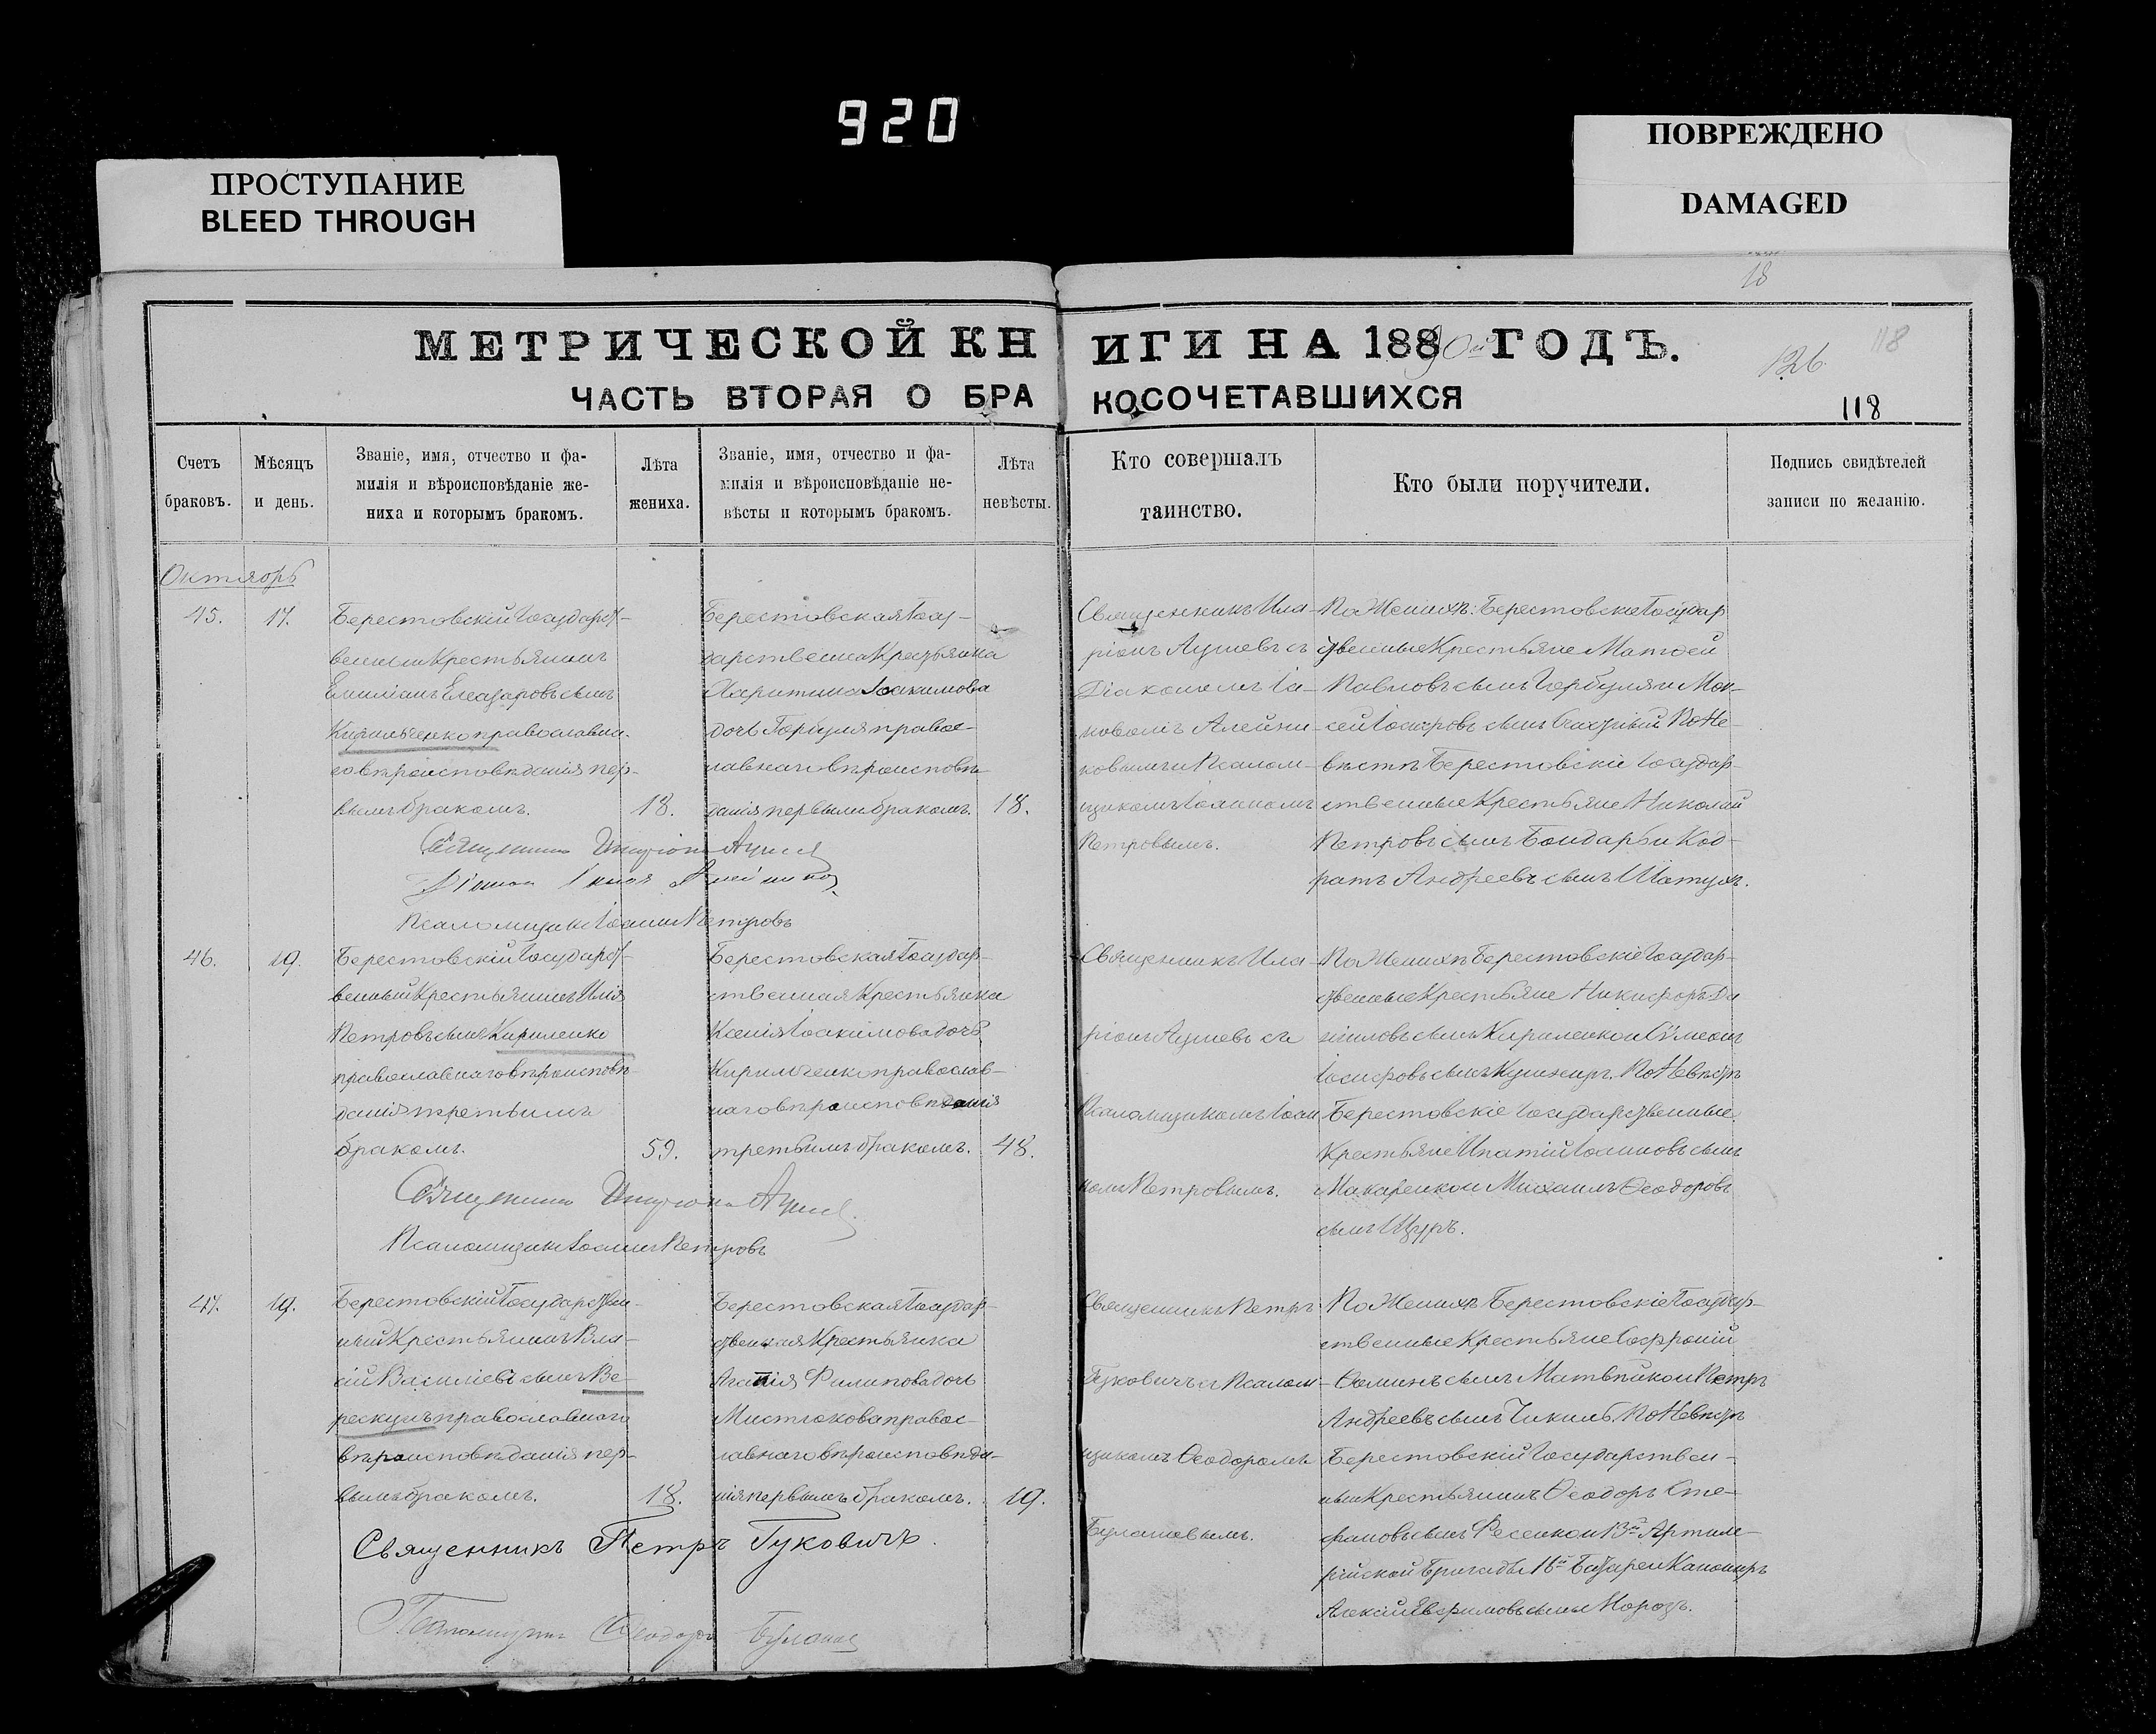 920
ПРОСТУПАНИЕ
BLEED THROUGH
ПОВРЕЖДЕНО
DAMAGED
18
МЕТРИЧЕСКОЙ КНИГИ НА 1890й ГОДЪ.
126
118
ЧАСТЬ ВТОРАЯ О БРАКОСОЧЕТАВШИХСЯ
118
Счетъ браковъ.
Мѣсяцъ и день.
Званіе, имя, отчество и фа-
милія и вѣроисповѣданіе же-
ниха и которымъ бракомъ.
Лѣта жениха.
Званіе, имя, отчество и фа-
милія и вѣроисповѣданіе не-
вѣсты и которымъ бракомъ.
Лѣта невѣсты.
Кто совершалъ
таинство.
Кто были поручители.
Подпись свидѣтелей
записи по желанію.
Октябрь
45.
17.
Берестовскій Государст-
венный Крестьянинъ
Емиліанъ Елеазаровъ сынъ
Кирильченко православна-
го вѣроисповѣданія пер-
вымъ бракомъ.
18.
Берестовская Госу-
дарственна Крестьянка
Харитина Іоакимова
дочь Горбуля правос-
лавнаго вѣроисповѣ-
данія первымъ бракомъ.
18.
Священникъ Ила-
ріонъ Ацшевъ съ
Діакономъ Іа-
ковомъ Алейни-
ковымъ и Псалом-
щикомъ Іоанномъ
Петровымъ.
По Женихѣ: Берестовскіе Государ
ственные Крестьяне Матѳей
Павловъ сынъ Горбуля и Мои-
сей Іосифовъ сынъ По Не-
вѣстѣ Берестовскіе Государ-
ственные Крестьяне Николай
Петровъ сынъ Бондарь и Код-
ратъ Андреевъ сынъ Шатухъ.
Священникъ
Псаломщикъ Іоаннъ Петровъ
46.
19.
Берестовскій Государст-
венный Крестьянинъ Илія
Петровъ сынъ Кириленко
православнаго вѣроисповѣ-
данія третьимъ
бракомъ.
59.
Берестовская Государ-
ственная Крестьянка
Ксенія Іоакимова дочь
Кирильченко православ-
наго вѣроисповѣданія
третьимъ бракомъ.
48.
Священникъ Ила-
ріонъ Ацшевъ съ
Псаломщикомъ Іоан
номъ Петровымъ.
По Женихѣ Берестовскіе Государ-
ственные Крестьяне Никифоръ Да
ніиловъ сынъ Кириленко и Сѵмеонъ
Іосифовъ сынъ Кушниръ. По Невѣстѣ
Берестовскіе Государственные
Крестьяне Ипатій Іоанновъ сынъ
Макаренко и Михаилъ Ѳеодоровъ
сынъ Щуръ.
Священникъ
Псаломщикъ Іоаннъ Петровъ
47.
19.
Берестовскій Государствен-
ный Крестьянинъ Вла-
сій Василіевъ сынъ Ве-
рескунъ православнаго
вѣроисповѣданія пер-
вымъ бракомъ.
18.
Берестовская Государ-
ственная Крестьянка
Агапія Филипова дочь
Мистюкова правос-
лавнаго вѣроисповѣда-
нія первымъ бракомъ.
19.
Священникъ Петръ
Гуковичъ съ Псалом-
щикомъ Ѳеодоромъ
Булановымъ.
По Женихѣ Берестовскіе Государ-
ственные Крестьяне Софроній
Ѳоминъ сынъ Матвѣйко и Петръ
Андреевъ сынъ Чикиль. По Невѣстѣ
Берестовскій Государствен-
ный Крестьянинъ Ѳеодоръ Сте-
фановъ сынъ Фесенко и 13й Артиле-
рійской Бригады 1й Батареи Канониръ
Алексій Евфимовъ сынъ Морозъ.
Священникъ Петръ Гуковичъ.
Псаломщикъ Ѳеодоръ Буланов